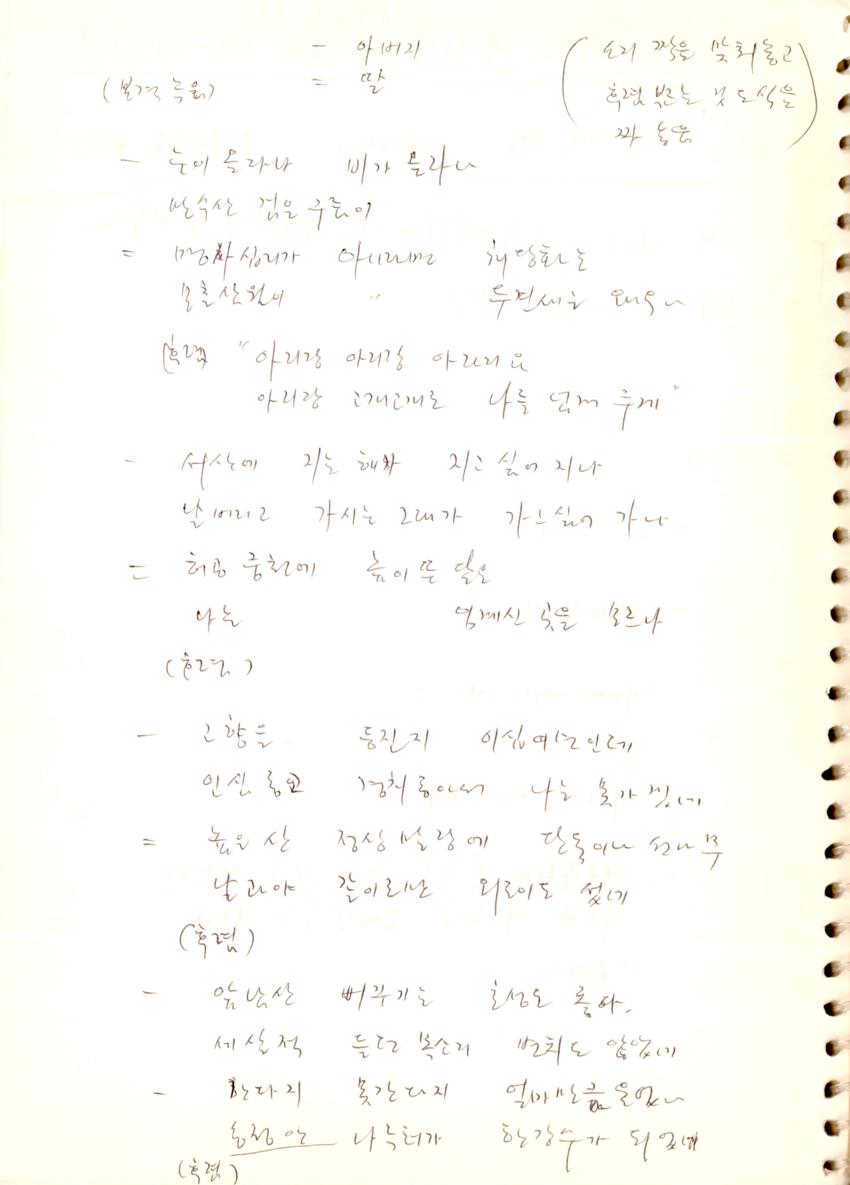 - 아버지
= 딸
(본격 녹음)
(소리 짝을 맞춰 놓고
후렴 부르는 것도 식을
짜 놓음)
- 눈이 올라나 비가 올라나
만수산 검은구름이
= 명사십리가 아니라면 해당화는
모춘삼월이 〃 두견새는 왜우나
(후렴) "아리랑 아리랑 아라리요
아리랑 고개고개로 나를 넘겨 주게"
- 서산에 지는 해가 지고 싶어 지나
날버리고 가시는 그대가 가고싶어 가나
= 허공 중천에 높이 뜬 달은
나는 임계신 곳을 모르나
(후렴)
- 고향을 등진지 이십여년인데
인심 좋고 경치좋아서 나는 못가겠네
= 높은 산 정상 말랑에 단독이나 선나무
날과야 같이로난 외로이도 섰네
(후렴)
- 앞남산 뻐꾸기는 초성도 좋아.
세살적 듣던 목소리 변치도 않았네
- 한다지 못간다지 얼마만큼 울었나
송정암 나룻터가 한강수가 되었네
(후렴)